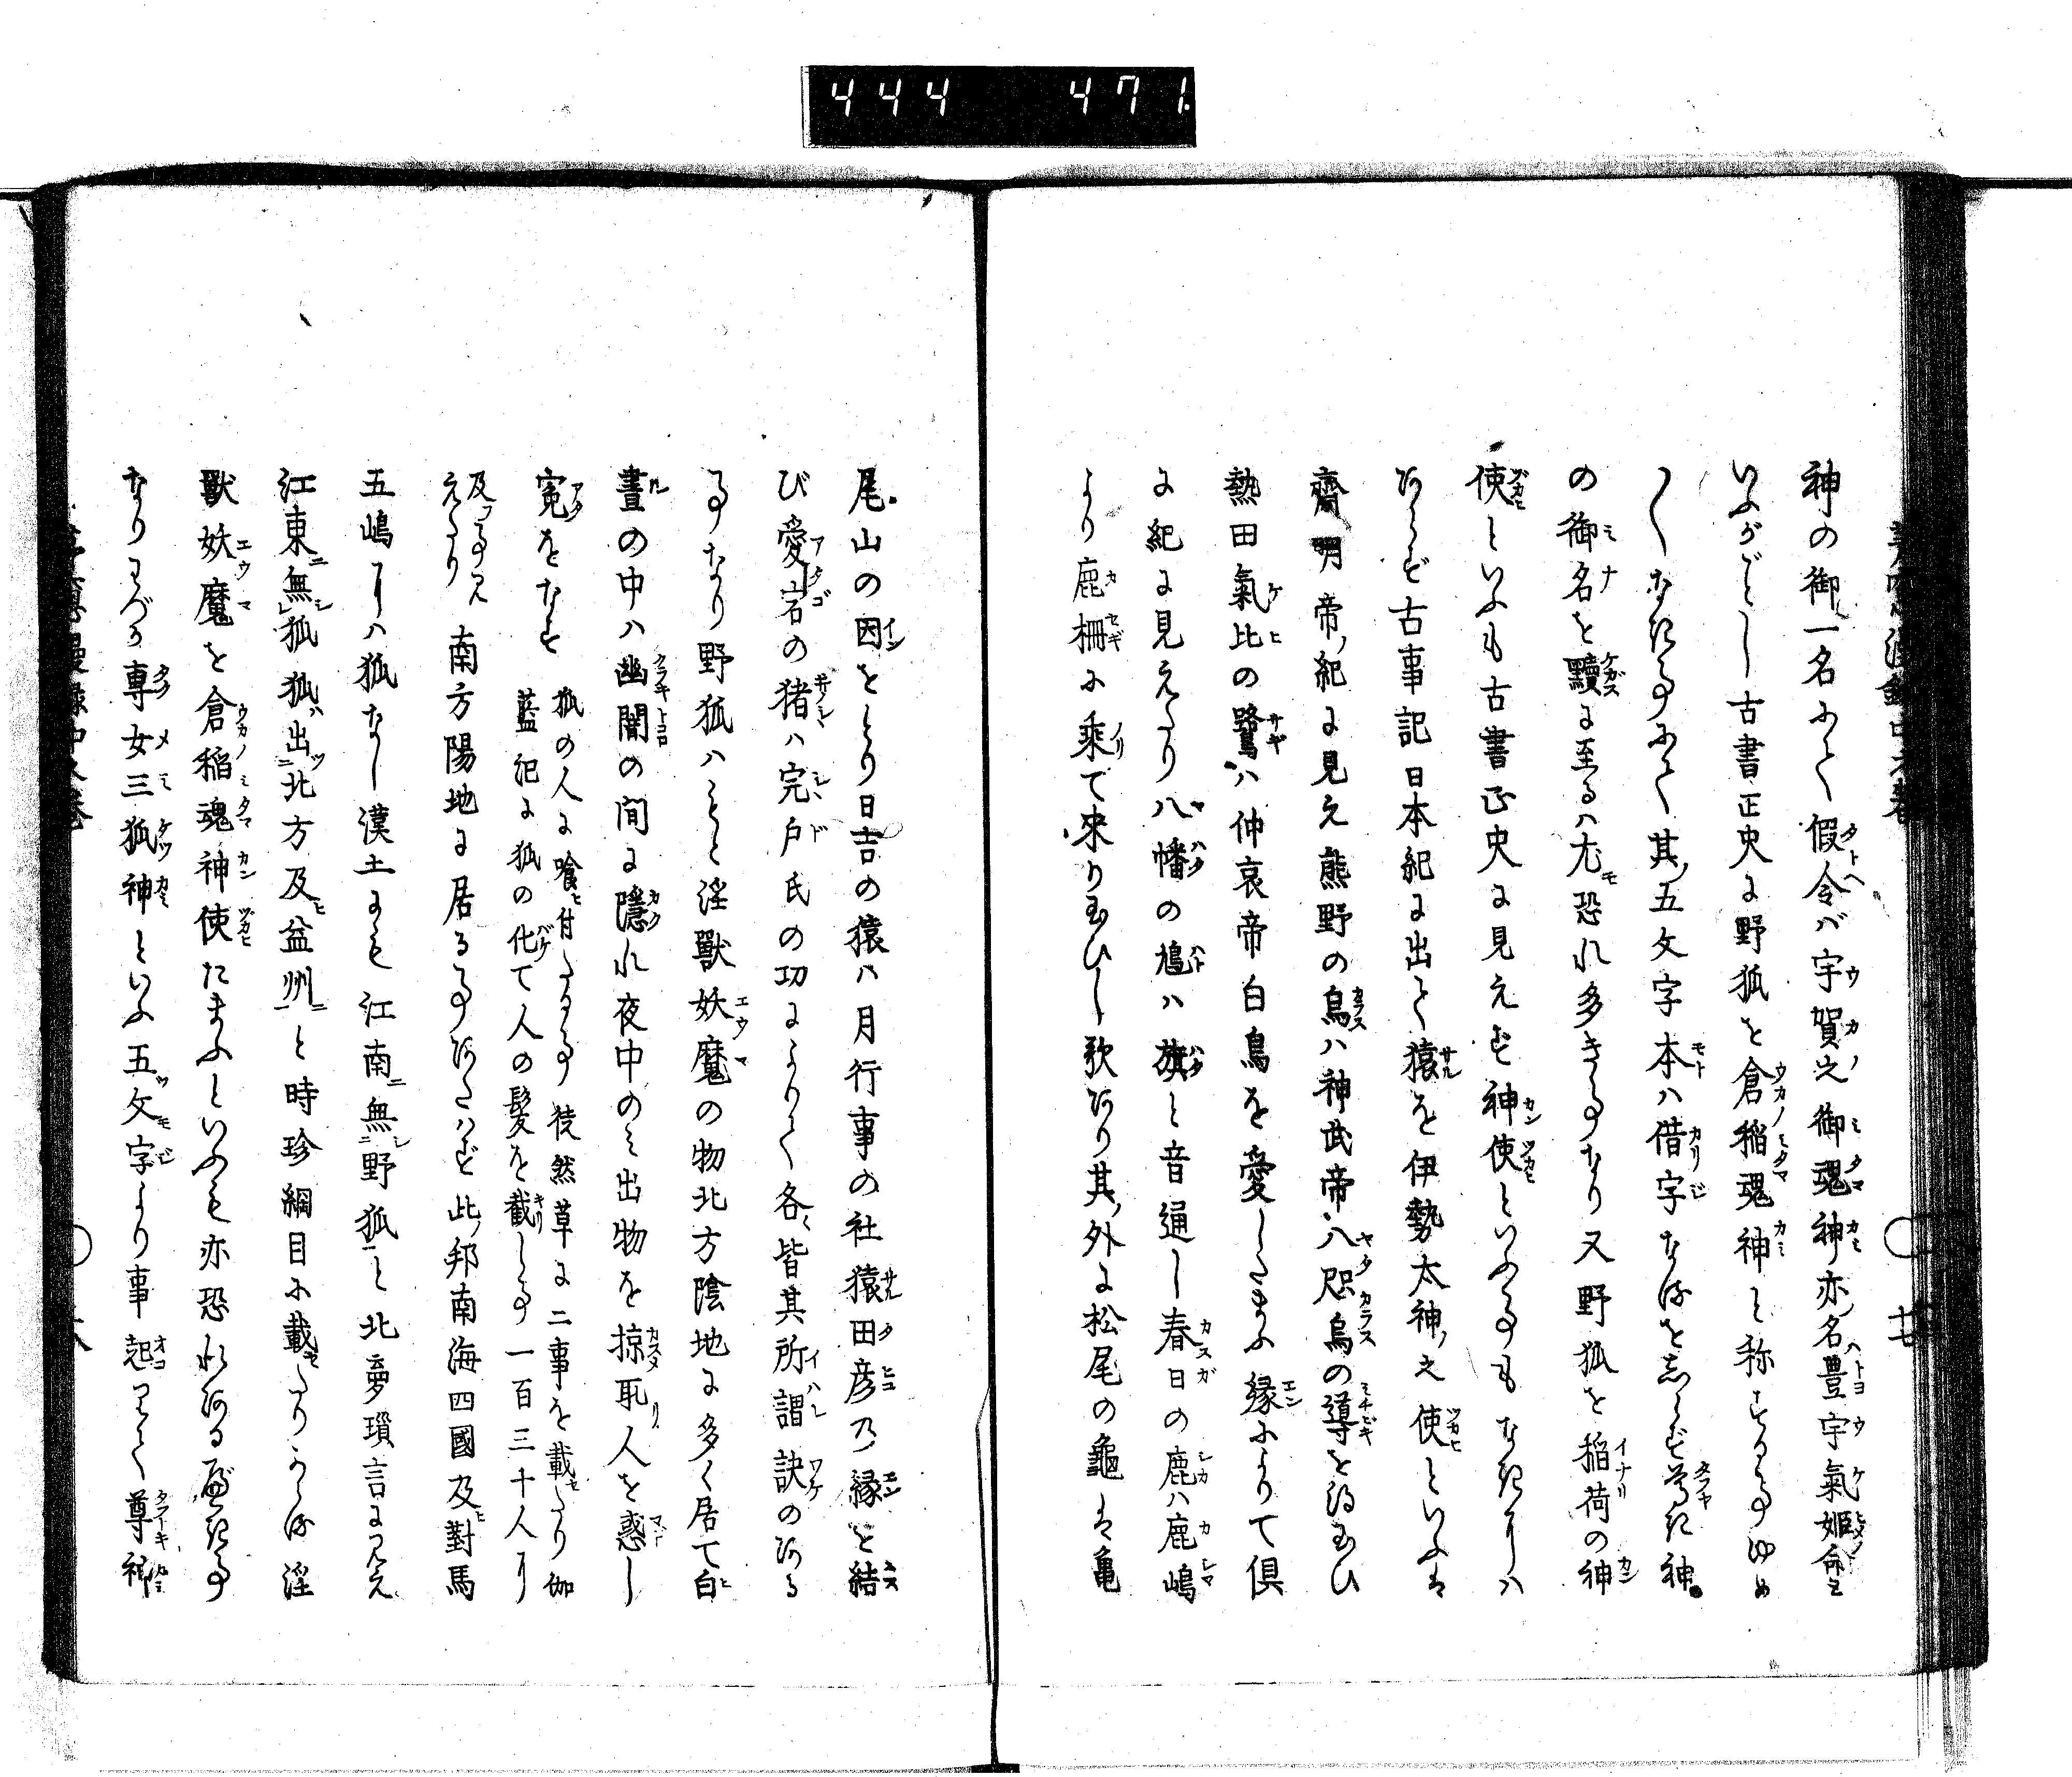 444 471
神の御一名ふて假令バ宇賀之御魂神亦ノ名ハ豊宇氣姫命と
いふがごとし古書正史に野狐を倉稲魂神と称する事ゆめ
〳〵なき事ふて其ノ五文字本ハ借字なるをしらず尊き神
の御名を黷に至るハ尤恐れ多き事なり又野狐を稲荷の神
使といふも古書正史に見えず神使といふ事もなきにハ
あらず古事記日本紀に出て猿を伊勢太神ノ之使といふハ
齋明帝ノ紀に見え熊野の烏ハ神武帝八咫烏の導を得玉ひ
熱田氣比の鷺ハ仲哀帝白鳥を愛したまふ縁ふよりて倶
に紀に見えたり八幡の鳩ハ旗と音通し春日の鹿ハ鹿嶋
より鹿柵ふ乗て来り玉ひし歌あり其ノ外に松尾の龜ハ亀
尾山の因をとり日吉の猿ハ月行事の社猿田彦乃縁を結
び愛宕の猪ハ完戸氏の功によりて各〻皆其所謂訣のある
事なり野狐ハもと淫獸妖魔の物北方陰地に多く居て白
晝の中ハ幽闇の間に隱れ夜中のミ出物を掠耴人を惑し
寃をなす 狐の人に喰付たる事徒然草に二事を載たり伽
藍記に狐の化て人の髪を截し事一百三十人に
及ぶ事見えたり 南方陽地に居る事あたハず此ノ邦南海四國及ヒ對馬
五嶋にハ狐なし漢土にも江南ニ無シ野狐と北夢瑣言に見え
江東ニ無シ狐狐ハ出ツ北方及ヒ益州ニと時珍綱目ふ載たりかゝる淫
獸妖魔を倉稲魂神使たまふといふも亦恐れある事
なりわづか専女三狐神といふ五文字より事起りて尊神